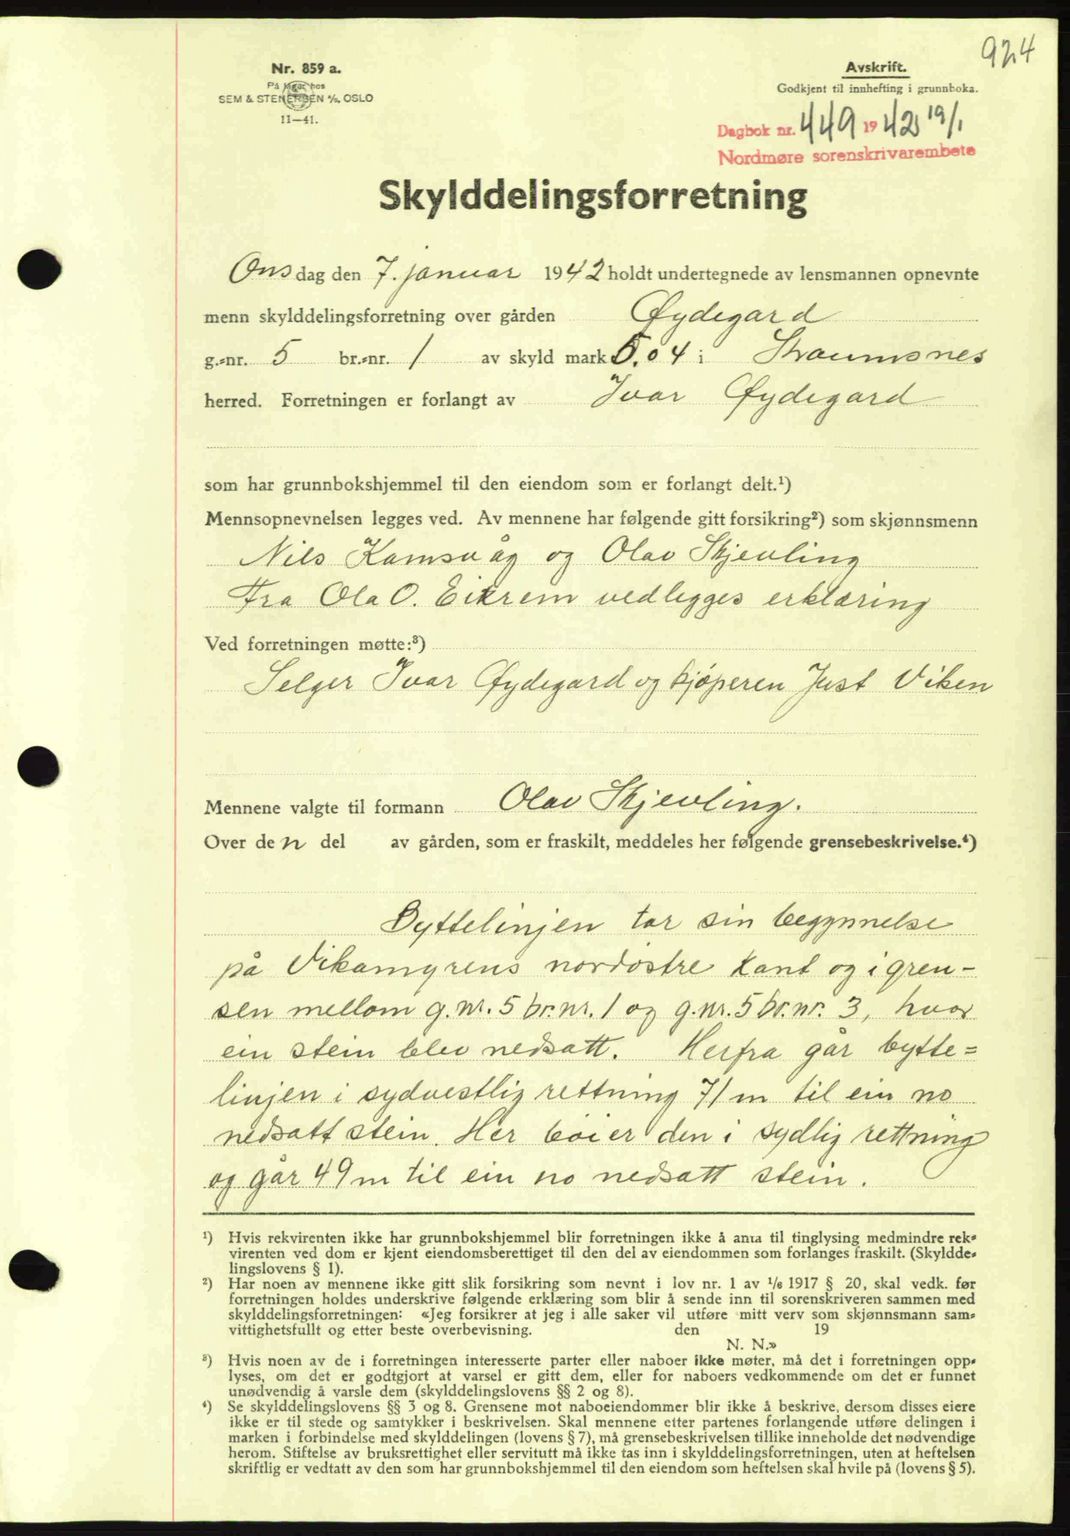 924
Nr. 859 a.
På lager hos
SEM & STENERSEN A/S, OSLO
11—41.
Avskrift.
Godkjent til innhefting i grunnboka.
Dagbok nr. 449 1942 19/1
Nordmøre sorenskrivarembete
Skylddelingsforretning
Onsdag den 7. januar 1942 holdt undertegnede av lensmannen opnevnte
menn skylddelingsforretning over gården Øydegard
g.-nr. 5 br.-nr. 1 av skyld mark 5.04 i Straumsnes
herred. Forretningen er forlangt av Ivar Øydegard
som har grunnbokshjemmel til den eiendom som er forlangt delt.¹)
Mennsopnevnelsen legges ved. Av mennene har følgende gitt forsikring²) som skjønnsmenn
Nils Kamsvåg og Olav Skjevling
Fra Ola O. Eikrem vedlegges erklæring
Ved forretningen møtte:³)
Selger Ivar Øydegard og kjøperen Just Viken
Mennene valgte til formann Olav Skjevling.
Over den del av gården, som er fraskilt, meddeles her følgende grensebeskrivelse.⁴)
Byttelinjen tar sin begynnelse
på Vikamyrens nordöstre kant og i gren-
sen mellom g.nr. 5 br.nr. 1 og g.nr. 5 br.nr. 3, hvor
ein stein blev nedsatt. Herfra går bytte=
linjen i sydvestlig rettning 71 m til ein no
nedsatt stein. Her böier den i sydlig rettning
og går 49 m til ein no nedsatt stein.
¹) Hvis rekvirenten ikke har grunnbokshjemmel blir forretningen ikke å anta til tinglysing medmindre rek-
virenten ved dom er kjent eiendomsberettiget til den del av eiendommen som forlanges fraskilt. (Skyldde-
lingslovens § 1).
²) Har noen av mennene ikke gitt slik forsikring som nevnt i lov nr. 1 av 1/6 1917 § 20, skal vedk. før
forretningen holdes underskrive følgende erklæring som blir å sende inn til sorenskriveren sammen med
skylddelingsforretningen: «Jeg forsikrer at jeg i alle saker vil utføre mitt verv som skjønnsmann sam-
vittighetsfullt og etter beste overbevisning. den 19
N. N.»
³) Hvis noen av de i forretningen interesserte parter eller naboer ikke møter, må det i forretningen opp-
lyses, om det er godtgjort at varsel er gitt dem, eller for naboers vedkommende om det er funnet
unødvendig å varsle dem (skylddelingslovens §§ 2 og 8).
⁴) Se skylddelingslovens §§ 3 og 8. Grensene mot naboeiendommer blir ikke å beskrive, dersom disses eiere
ikke er til stede og samtykker i beskrivelsen. Skal mennene etter partenes forlangende utføre delingen i
marken i forbindelse med skylddelingen (lovens § 7), må grensebeskrivelsen tillike inneholde det nødvendige
herom. Stiftelse av bruksrettighet eller servitutt må ikke tas inn i skylddelingsforretningen, uten at heftelsen
skriftlig er vedtatt av den som har grunnbokshjemmel til den eiendom som heftelsen skal hvile på (lovens § 5).